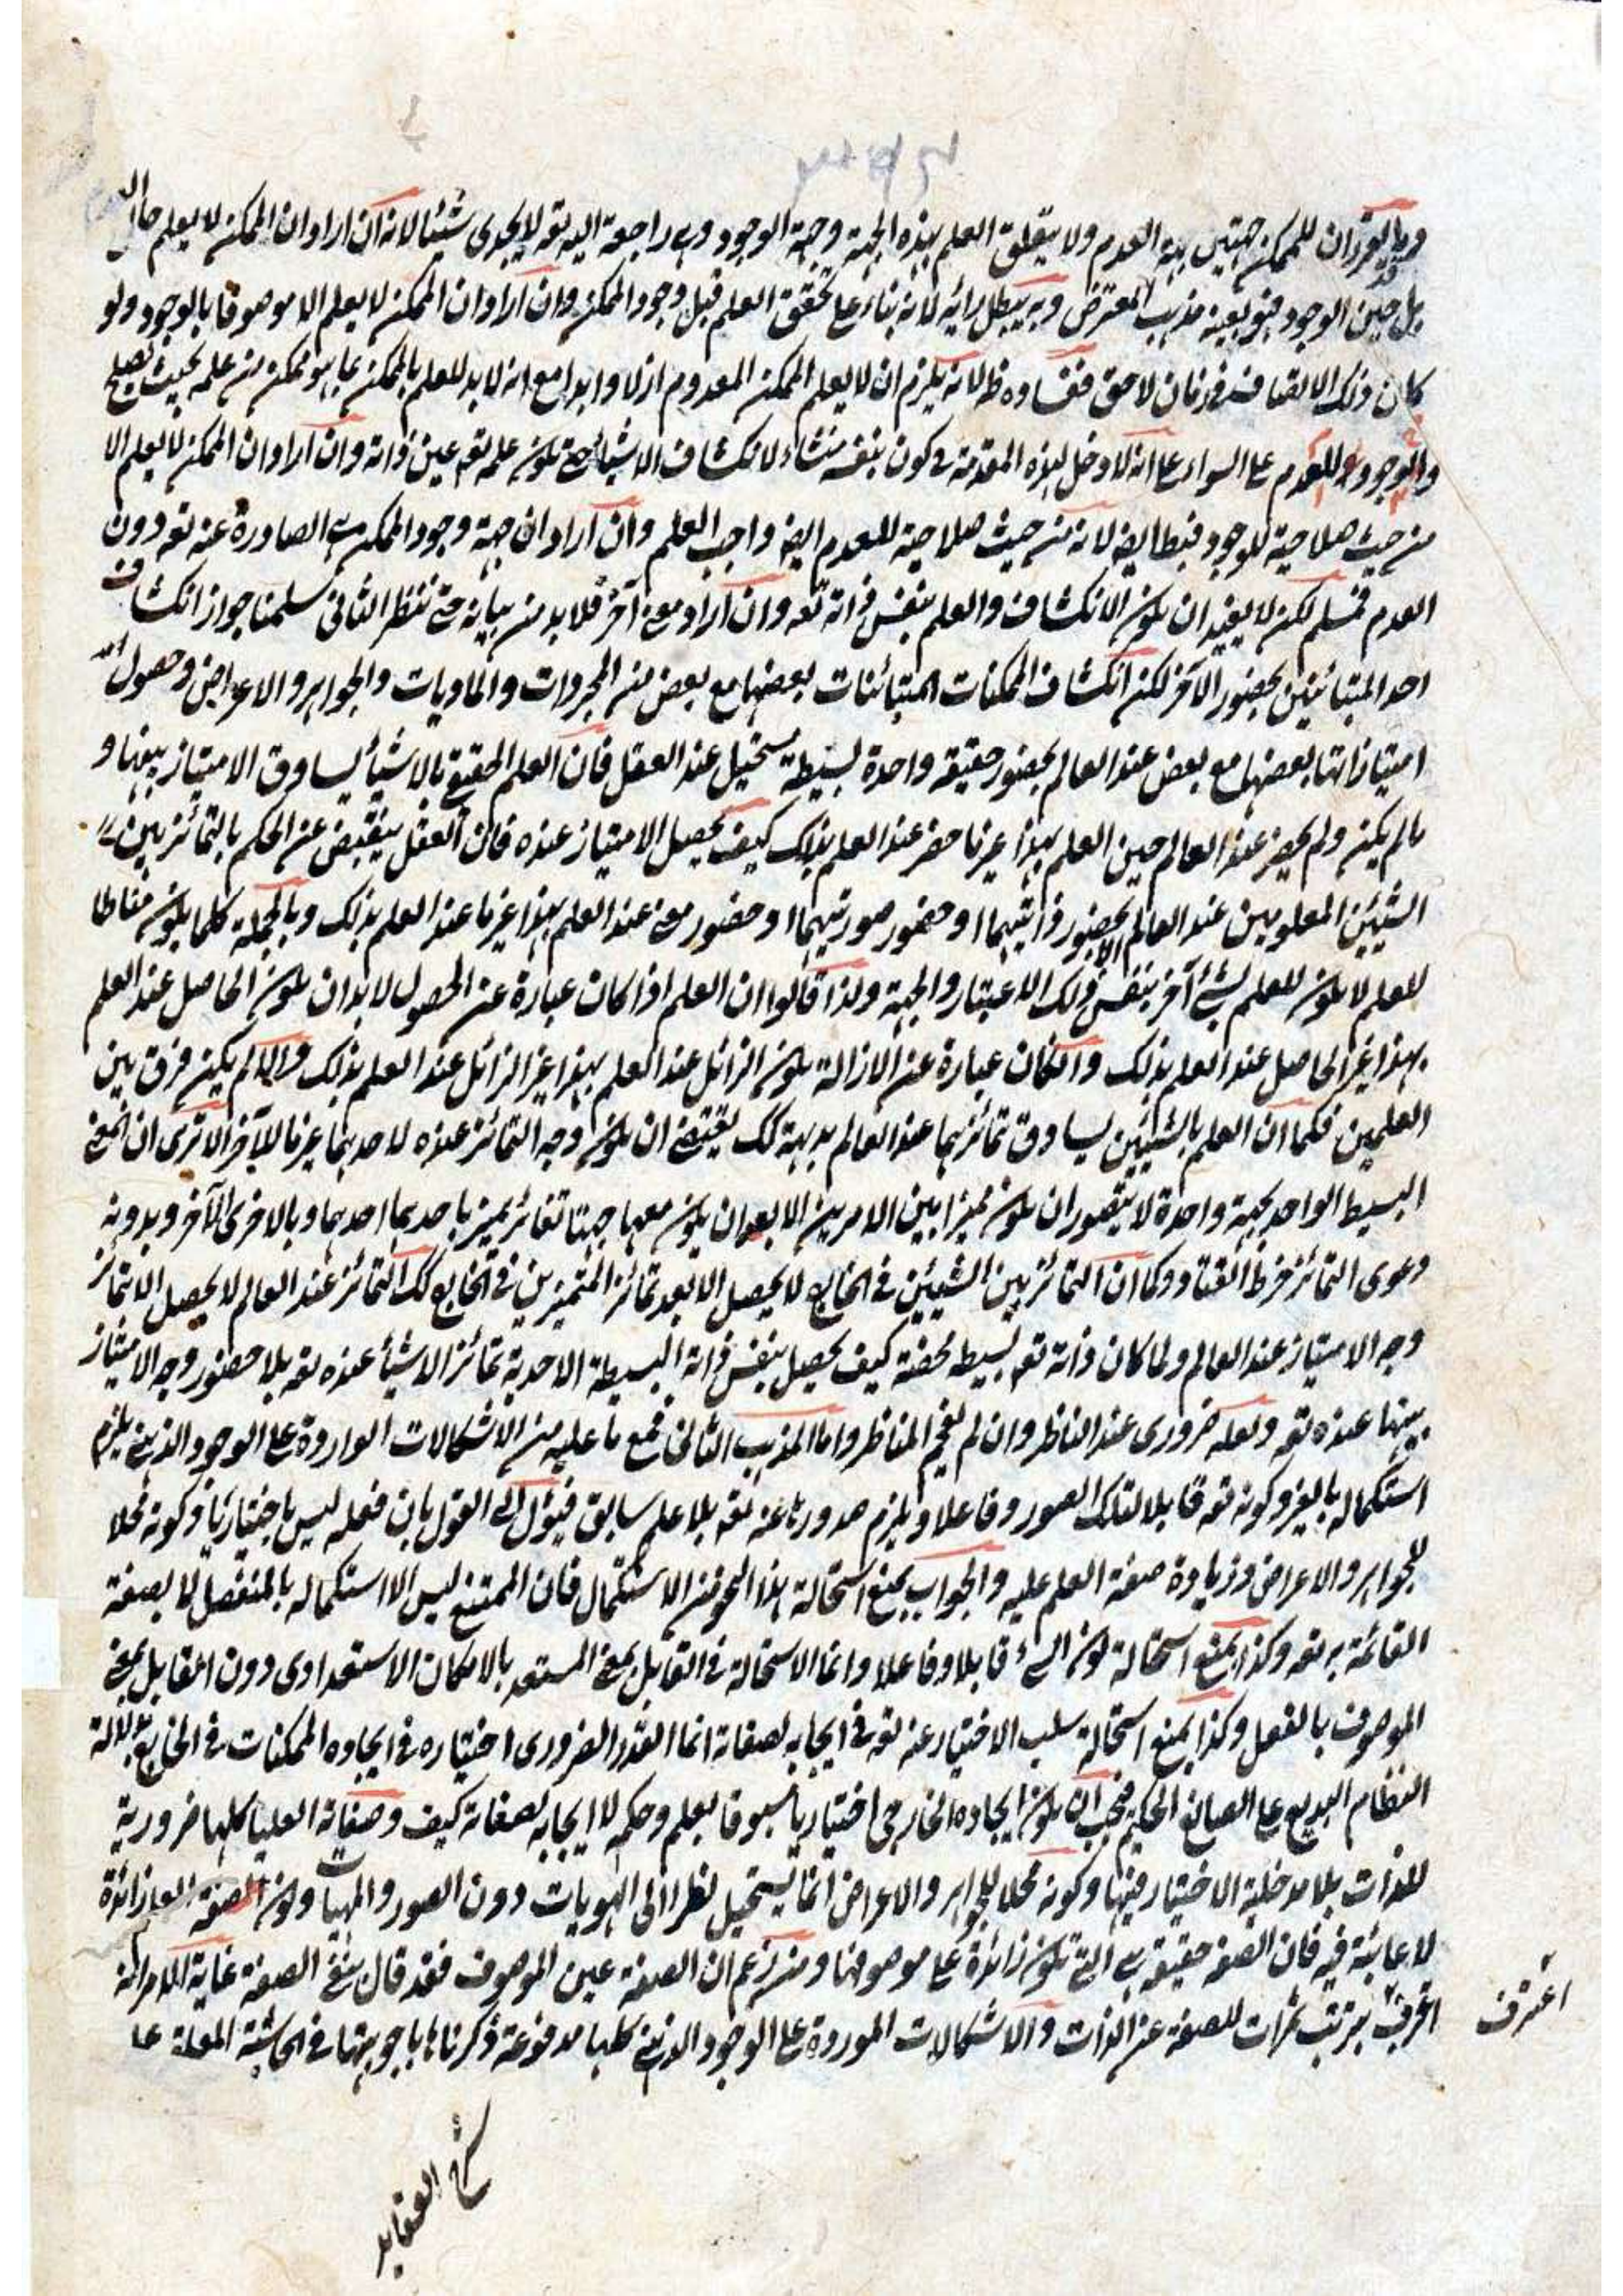 ان للممكن جهتين جهة العدم ولا يتعلق العلم بهذه الجهة وجهة الوجود وهى راجعة اليه تعه لا يجدى شيئا لانه ان اراد ان الممكن لا يعلم حال
بل حين الوجود فهو بعينه مذهب المعترض وبه يبطل رائيه لانه بناء على تحقق العلم قبل وجود الممكن وان اراد ان الممكن لا يعلم الا موصوفا بالوجود ولو
كان ذلك الاتصاف فى زمان لاحق ففساده ظ لانه يلزم ان لا يعلم الممكن المعدوم ازلا وابدا مع انه لا بد للعلم بالممكن بما هو ممكن من علمه بحيث يصلح
للوجود وللعدم على السواء على انه لا دخل لهذه المقدمة فى كون بنفسه منشاء لانكشاف الاشياء حتى يكون علمه تعه عين ذاته وان اراد ان الممكن لا يعلم الا
من حيث صلاحية للوجود فبط ايضه لانه من حيث صلاحية للعدم ايضه واجب العلم وان اراد ان جهة وجود الممكن هى الصادرة عنه تعه دون
العدم فمسلم لكن لا يفيد ان يكون الانكشاف والعلم بنفس ذاته تعه وان اراد معنى آخر فلا بد من بيانه حتى ننظر الثانى سلمنا جواز انكشاف
احد المتبائنين بحضور الآخر لكن انكشاف الممكنات المتبائنات بعضها مع بعض من المجردات والماديات والجواهر والاعراض وحصول
امتيازاتها بعضها مع بعض عند العالم بحضور حقيقة واحدة بسيطة مستحيل عند العقل فان العلم الحقيقى بالاشياء يساوق الامتياز بينها و
ما لم يكن ولم يحضر عند العالم حين العلم بهذا غير ما حضر عند العلم بذلك كيف يحصل الامتياز عنده فان العقل ينقبض عن الحكم بالتمائز بين
الشيئين المعلومين عند العالم الا بحضور ذاتيهما او حضور صورتيهما او حضور معنى عند العلم بهذا غير ما عند العلم بذلك وبالجملة كلما يكون مناطا
للعلم لا يكون للعلم بشئ آخر بنفس ذلك الاعتبار والجهة ولذا قالوا ان العلم اذا كان عبارة عن الحصول لا بد ان يكون الحاصل عند العلم
بهذا غير الحاصل عند العلم بذلك وان كان عبارة عن الازالة يكون الزائل عند العلم بهذا غير الزائل عند العلم بذلك والا لم يكن فرق بين
العلمين فكما ان العلم بالشيئين يساوق تمائزهما عند العالم بديهة كك يقتضى ان يكون وجه التمائز عنده لاحدهما غير ما للآخر الا ترى ان المعنى
البسيط الواحد بجهة واحدة لا يتصور ان يكون مميزا بين الامرين الا بعد ان يكون معها جهتا تغائر يميز باحدهما احدهما وبالاخرى الآخر وبدونه
دعوى التمائز خرط القتاد وكما ان التمائز بين الشيئين فى الخارج لا يحصل الا بعد تمائز المتميزين فى الخارج كك التمائز عند العالم لا يحصل الا بتمائز
وجه الامتياز عند العالم ولما كان ذاته تعه بسيطه محضة كيف يحصل بنفس ذاته البسيطة الاحدية تمائز الاشياء عنده تعه بلا حضور وجه الامتياز
بينها عنده تعه ولعله ضرورى عند الناظر وان لم يفحم المناظر واما المذهب الثانى فمع ما عليه من الاشكالات الواردة على الوجود الذهنى يلزم
استكماله بالغير وكونه تعه قابلا لتلك الصور وفاعلا ويلزم صدورها عنه تعه بلا علم سابق فيؤل الى القول بان فعله ليس باختيارى وكونه محلا
للجواهر والاعراض وزيادة صفة العلم عليه والجواب بمنع استحالة هذا النحو من الاستكمال فان الممتنع ليس الا استكماله بالمنفصل لا بصفة
القائمة به تعه وكذا بمنع استحالة كون الشئ قابلا وفاعلا وانما الاستحالة فى القابل بمعنى المستعد بالامكان الاستعدادى دون القابل بمعنى
الموصوف بالفعل وكذا بمنع استحالة سلب الاختيار عنه تعه فى ايجابه لصفاته انما القدر الضرورى اختياره فى ايجاده الممكنات فى الخارج بدلالة
النظام البديع على الصانع الحكيم فيجب ان يكون ايجاده الخارجى اختياريا مسبوقا بعلم وحكمة لا ايجابه لصفاته كيف وصفاته العليا كلها ضرورية
للذات بلا مدخلية الاختيار فيها وكونه محلا للجواهر والاعراض انما يستحيل نظرا الى الهويات دون الصور والمهيات وكون الصفة زائدة
لا عائبة فيه فان الصفه حقيقة هى التى يكون زائدة على موصوفها ومن زعم ان الصفة عين الموصوف فقد قال بنفى الصفة غاية الامر انه
اعترف بترتب ثمرات للصفة عن الذات والاشكالات الموردة على الوجود الذهنى كلها مدفوعة ذكرناها باجوبتها فى الحاشية المعلة على
اعترف
شرح العقايد